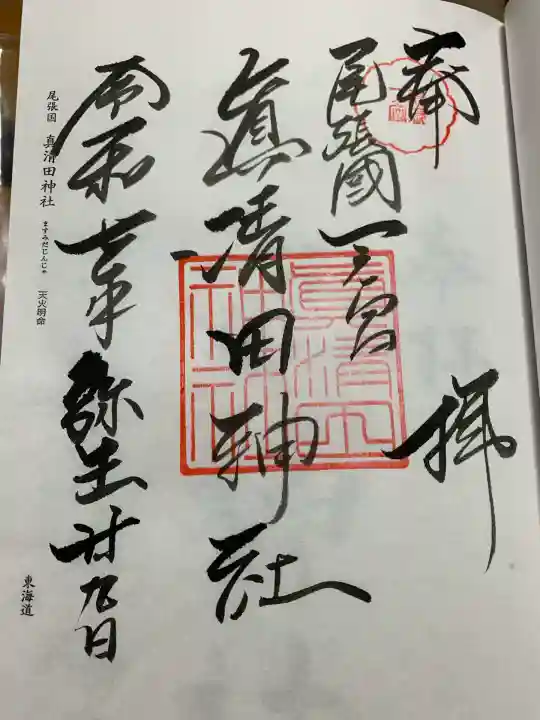 奉拝
尾張國一之宮
真清田神社
令和七年弥生廿九日
尾張国 真清田神社 ますみだじんじゃ 天火明命
東海道